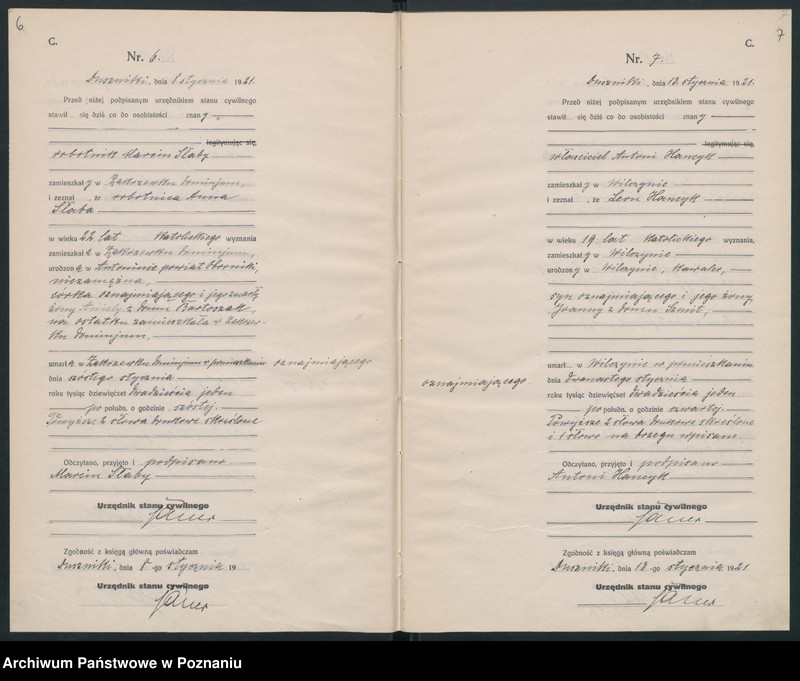 6
C.
Nr. 6.
Duszniki, dnia 8 stycznia 1921.
Przed niżej podpisanym urzędnikiem stanu cywilnego
stawił się dziś co do osobistości znany
legitymując się,
robotnik Marcin Słaby
zamieszkały w Zakrzewku dominjum,
i zeznał, że robotnica Anna
Słaba
w wieku 22 lat katolickiego wyznania
zamieszkała w Zakrzewku dominjum,
urodzona w Antoninie powiat Oborniki,
niezamężna,
córka oznajmiającego i jego zmarłej
żony Anieli z domu Bartoszak,
na ostatku zamieszkała w Zakrzew-
ku dominjum,
umarła w Zakrzewku dominjum w pomieszkaniu oznajmiającego
dnia szóstego stycznia
roku tysiąc dziewięćset dwadzieścia jeden
po połudn. o godzinie szóstej.
Powyższe 2 słowa drukowe skreślone
Odczytano, przyjęto i podpisano
Marcin Słaby
Urzędnik stanu cywilnego
Zgodność z księgą główną poświadczam
Duszniki, dnia 8-go stycznia 19
Urzędnik stanu cywilnego
7
C.
Nr. 7.
Duszniki, dnia 12 stycznia 1921.
Przed niżej podpisanym urzędnikiem stanu cywilnego
stawił się dziś co do osobistości znany
legitymując się,
włościciel Antoni Hancyk
zamieszkały w Wilczynie
i zeznał, że Leon Hancyk
w wieku 19 lat katolickiego wyznania,
zamieszkały w Wilczynie
urodzony w Wilczynie, kawaler,
syn oznajmiającego i jego żony,
Joanny z domu Szmit,
umarł w Wilczynie w pomieszkaniu
oznajmiającego
dnia dwunastego stycznia
roku tysiąc dziewięćset dwadzieścia jeden
po połudn. o godzinie czwartej.
Powyższe 2 słowa drukowe skreślone
i 1 słowo na brzegu wpisane.
Odczytano, przyjęto i podpisano
Antoni Hancyk
Urzędnik stanu cywilnego
Zgodność z księgą główną poświadczam
Duszniki, dnia 12-go stycznia 1921
Urzędnik stanu cywilnego
Archiwum Państwowe w Poznaniu